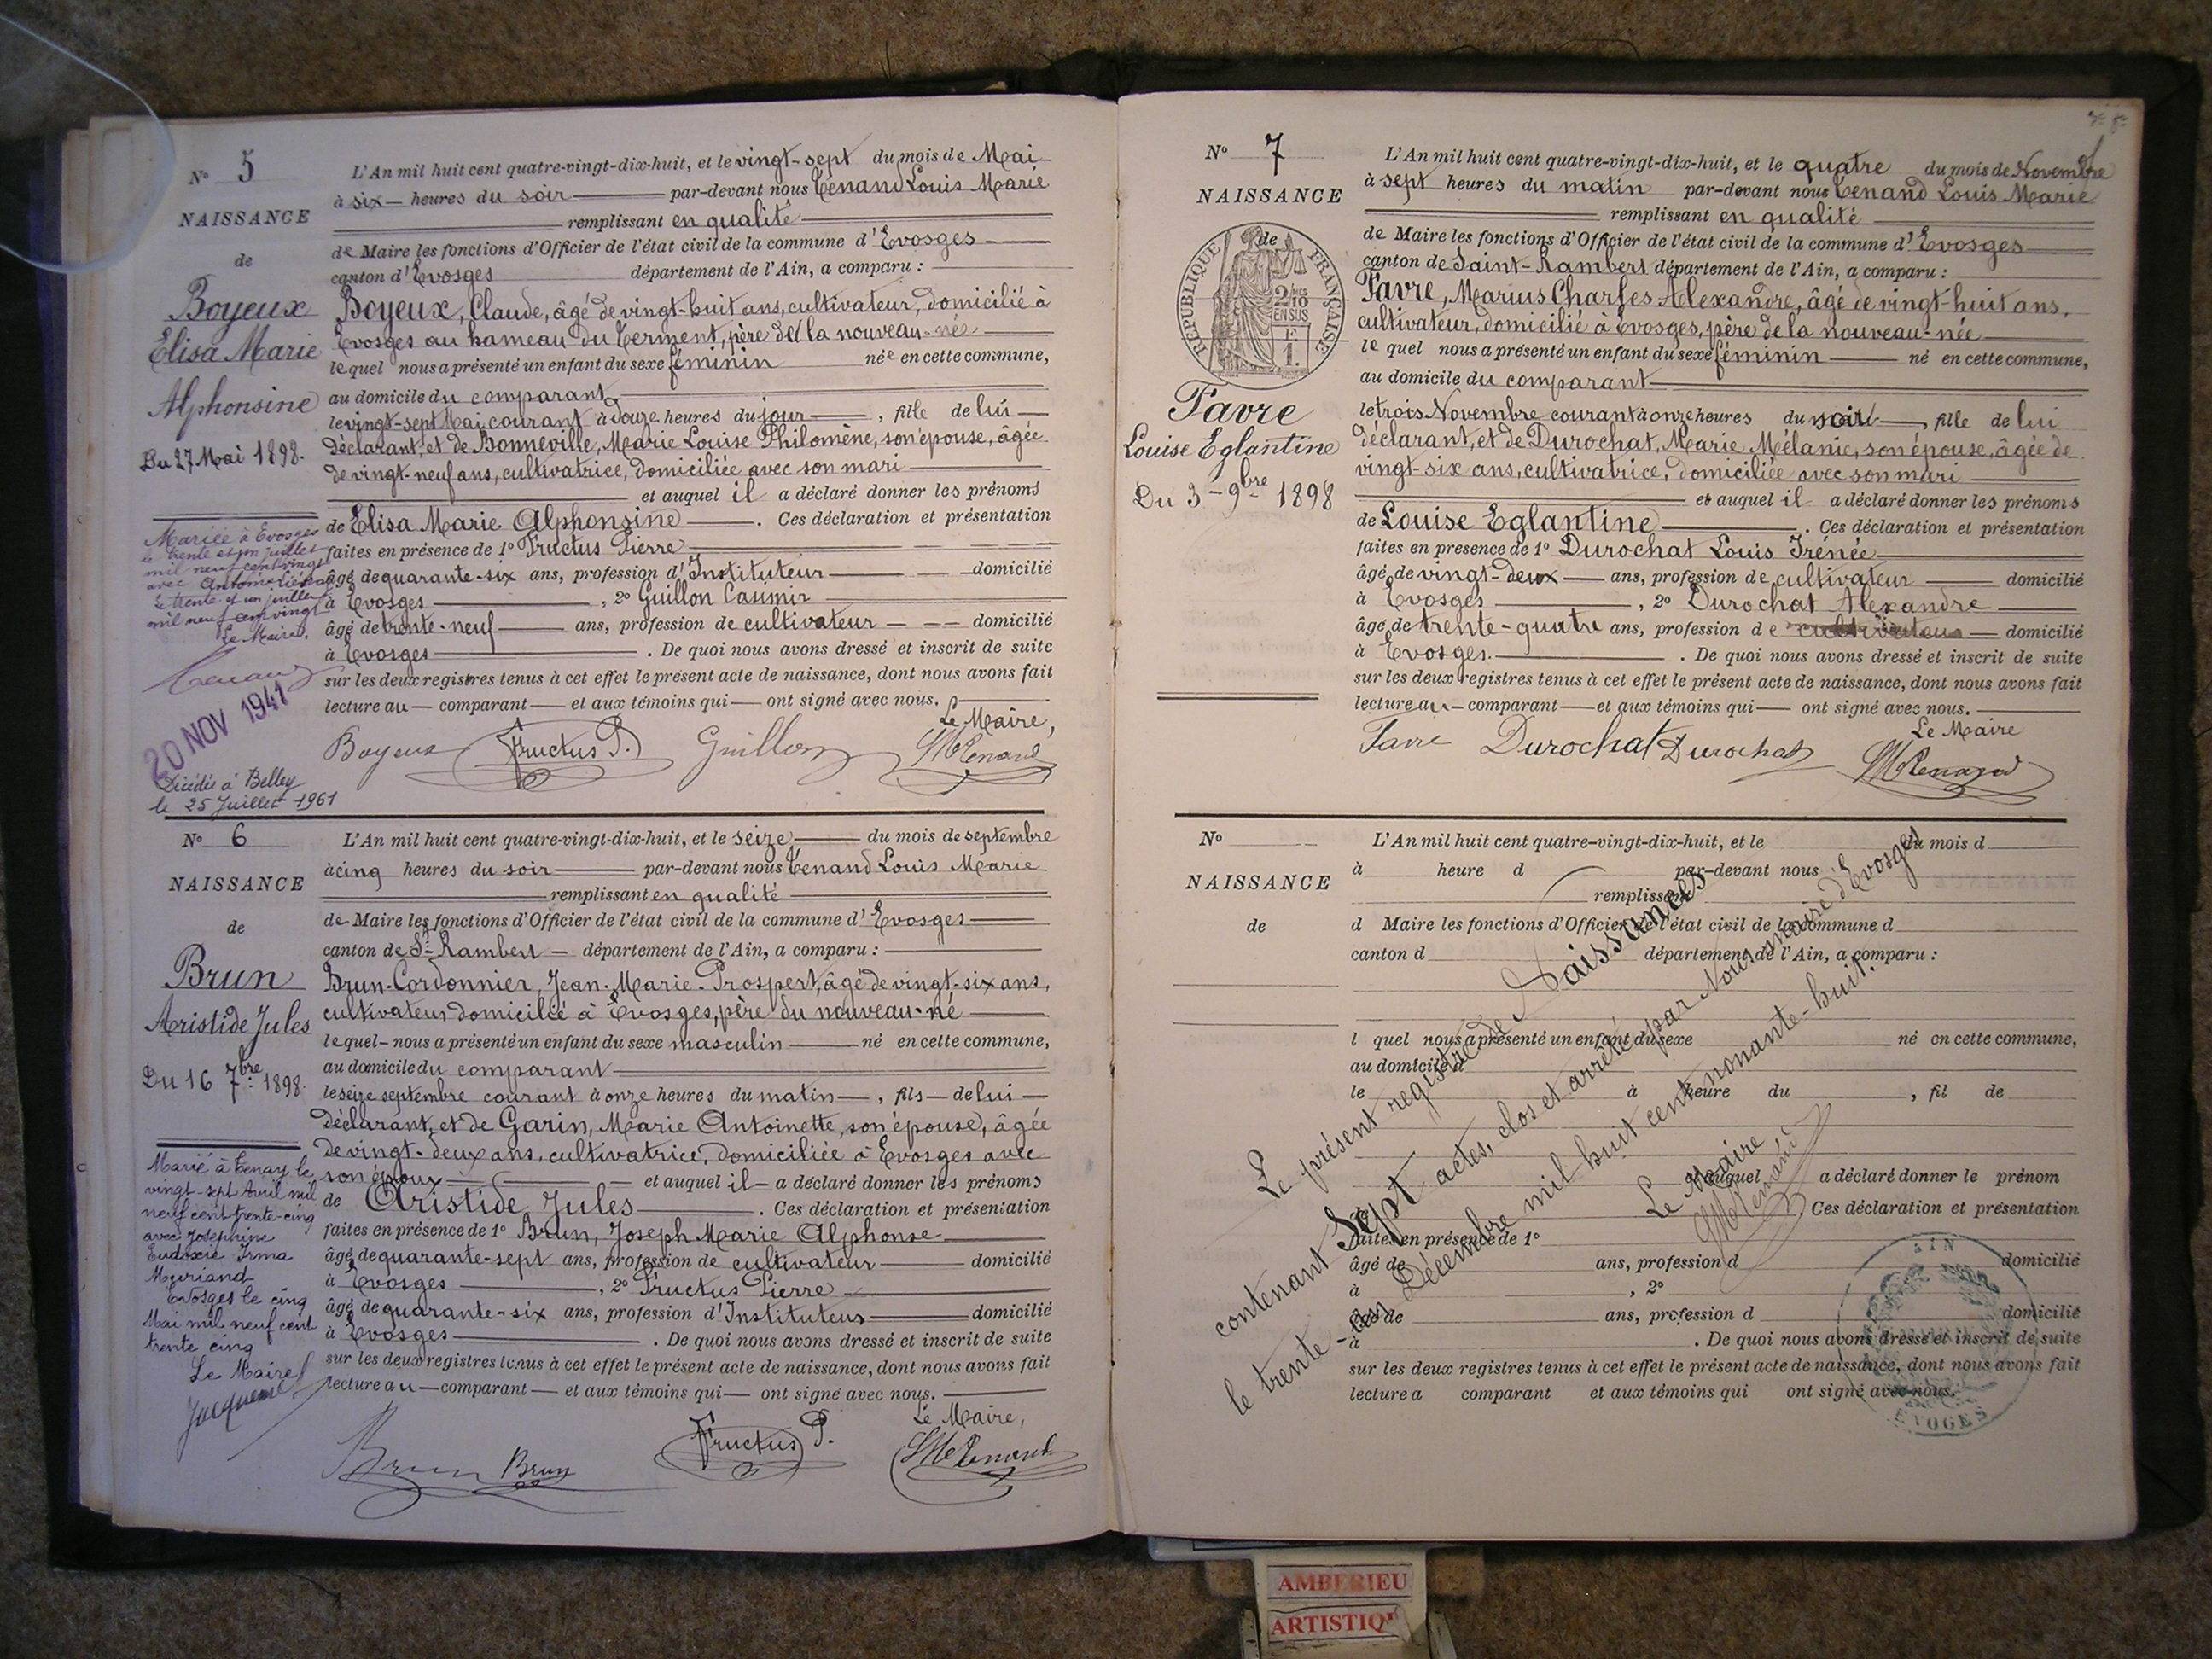 N° 5
NAISSANCE
de
Boyeux
Elisa Marie
Alphonsine
Du 27 Mai 1898.
L'An mil huit cent quatre-vingt-dix-huit, et le vingt-sept du mois de Mai
à six heures du soir par-devant nous Tenand Louis Marie
remplissant en qualité
de Maire les fonctions d'Officier de l'état civil de la commune d'Evosges
canton d'Evosges département de l'Ain, a comparu :
Boyeux, Claude, âgé de vingt-huit ans, cultivateur, domicilié à
Evosges au hameau du Terment, père de la nouveau-née
lequel nous a présenté un enfant du sexe féminin née en cette commune,
au domicile du comparant
le vingt-sept Mai courant à douze heures du jour, fille de lui
déclarant, et de Bonneville, Marie Louise Philomène, son épouse, âgée
de vingt-neuf ans, cultivatrice, domiciliée avec son mari
et auquel il a déclaré donner les prénoms
de Elisa Marie Alphonsine. Ces déclaration et présentation
faites en présence de 1° Fructus Pierre
âgé de quarante-six ans, profession d'Instituteur domicilié
à Evosges, 2° Guillon Casimir
âgé de trente-neuf ans, profession de cultivateur domicilié
à Evosges. De quoi nous avons dressé et inscrit de suite
sur les deux registres tenus à cet effet le présent acte de naissance, dont nous avons fait
lecture au comparant et aux témoins qui ont signé avec nous.
Le Maire,
Boyeux Fructus P. Guillon LMTenand
Mariée à Evosges
le trente et un juillet
mil neuf cent vingt
avec
Le trente et un juillet
mil neuf cent vingt
Le Maire.
Tenand
20 NOV 1941
Décédée à Belley
le 25 Juillet 1961
N° 6
NAISSANCE
de
Brun
Aristide Jules
Du 16 7bre 1898.
L'An mil huit cent quatre-vingt-dix-huit, et le seize du mois de septembre
à cinq heures du soir par-devant nous Tenand Louis Marie
remplissant en qualité
de Maire les fonctions d'Officier de l'état civil de la commune d'Evosges
canton de St Rambert département de l'Ain, a comparu :
Brun-Cordonnier, Jean-Marie-Prospert, âgé de vingt-six ans,
cultivateur domicilié à Evosges, père du nouveau-né
lequel nous a présenté un enfant du sexe masculin né en cette commune,
au domicile du comparant
le seize septembre courant à onze heures du matin, fils de lui
déclarant, et de Garin, Marie Antoinette, son épouse, âgée
de vingt-deux ans, cultivatrice, domiciliée à Evosges avec
son époux et auquel il a déclaré donner les prénoms
de Aristide Jules. Ces déclaration et présentation
faites en présence de 1° Brun, Joseph Marie Alphonse
âgé de quarante-sept ans, profession de cultivateur domicilié
à Evosges, 2° Fructus Pierre
âgé de quarante-six ans, profession d'Instituteur domicilié
à Evosges. De quoi nous avons dressé et inscrit de suite
sur les deux registres tenus à cet effet le présent acte de naissance, dont nous avons fait
lecture au comparant et aux témoins qui ont signé avec nous.
Le Maire,
Brun Brun Fructus P. LMTenand
Marié à Tenay le
vingt-sept Avril mil
neuf cent trente-cinq
avec Joséphine
Eudoxie Irma
Muriand
Evosges le cinq
Mai mil neuf cent
trente cinq
Le Maire
Jacquemet
N° 7
NAISSANCE
de
RÉPUBLIQUE FRANÇAISE
2/10 EN SUS
F.
1.
Favre
Louise Eglantine
Du 3 9bre 1898
L'An mil huit cent quatre-vingt-dix-huit, et le quatre du mois de Novembre
à sept heures du matin par-devant nous Tenand Louis Marie
remplissant en qualité
de Maire les fonctions d'Officier de l'état civil de la commune d'Evosges
canton de Saint-Rambert département de l'Ain, a comparu :
Favre, Marius Charles Alexandre, âgé de vingt-huit ans,
cultivateur, domicilié à Evosges, père de la nouveau-née
lequel nous a présenté un enfant du sexe féminin né en cette commune,
au domicile du comparant
le trois Novembre courant à onze heures du soir, fille de lui
déclarant, et de Durochat, Marie Mélanie, son épouse, âgée de
vingt-six ans, cultivatrice, domiciliée avec son mari
et auquel il a déclaré donner les prénoms
de Louise Eglantine. Ces déclaration et présentation
faites en presence de 1° Durochat Louis Irénée
âgé de vingt-deux ans, profession de cultivateur domicilié
à Evosges, 2° Durochat Alexandre
âgé de trente-quatre ans, profession de cultivateur domicilié
à Evosges. De quoi nous avons dressé et inscrit de suite
sur les deux registres tenus à cet effet le présent acte de naissance, dont nous avons fait
lecture au comparant et aux témoins qui ont signé avec nous.
Le Maire
Favre Durochat Durochat LMTenand
N°
NAISSANCE
de
L'An mil huit cent quatre-vingt-dix-huit, et le du mois d
à heure d par-devant nous
remplissant
d Maire les fonctions d'Officier de l'état civil de la commune d
canton d département de l'Ain, a comparu :
l quel nous a présenté un enfant du sexe né en cette commune,
au domicile d
le à heure du , fil de
et auquel a déclaré donner le prénom
Ces déclaration et présentation
faites en présence de 1°
âgé de ans, profession d domicilié
à , 2°
âgé de ans, profession d domicilié
à . De quoi nous avons dressé et inscrit de suite
sur les deux registres tenus à cet effet le présent acte de naissance, dont nous avons fait
lecture a comparant et aux témoins qui ont signé avec nous.
Le présent registre de Naissances
contenant Sept actes, clos et arrêté par Nous, maire d'Evosges
le trente-un Décembre mil huit cent nonante-huit.
Le Maire
LMTenand
AIN
EVOGES
AMBERIEU
ARTISTIQ